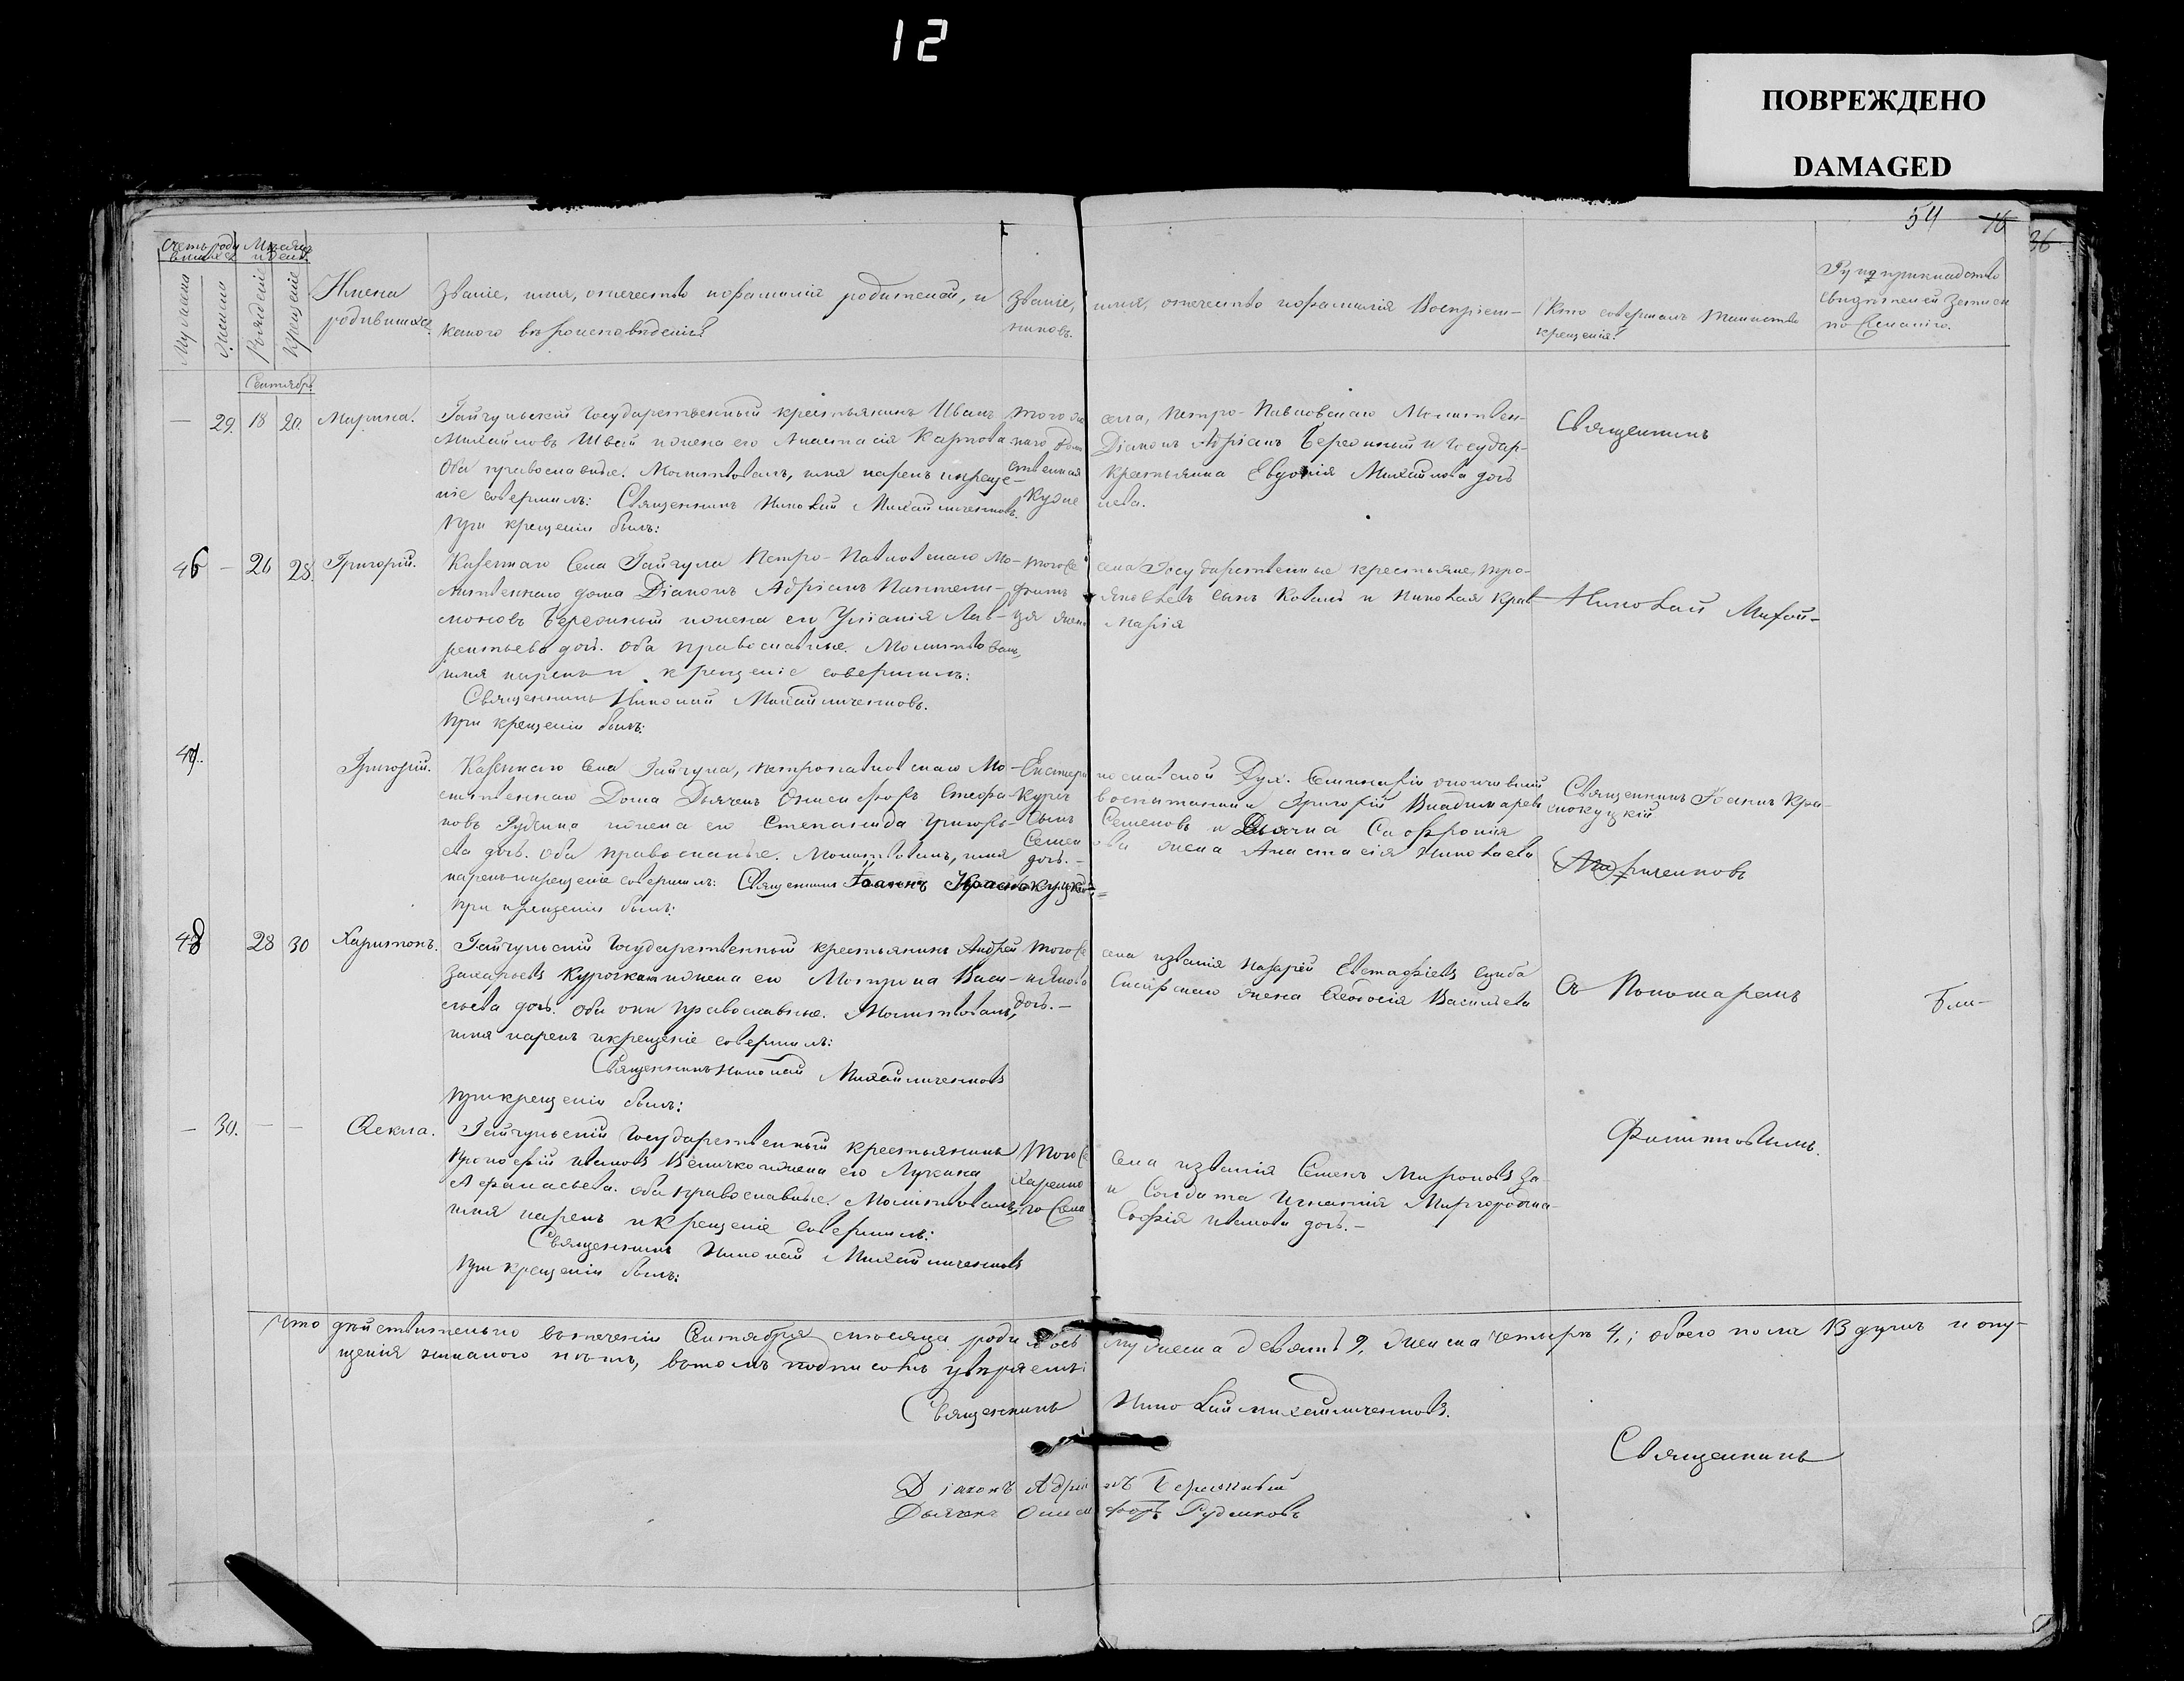 12
ПОВРЕЖДЕНО
DAMAGED
54 16
36
Счетъ роди Мѣсяцъ
вшихся и день
Мужеска
Женска
Рожденіе
Крещеніе
Имена
родившихся.
Званіе, имя, отечество и фамилія родителей, и
какого вѣроисповѣденія?
Званіе, имя, отечество и фамилія Воспріем-
никовъ.
Кто совершалъ таинство
крещенія?
Рукоприкладство
свидѣтелей записи
по желанію.
Сентябрь
— 29. 18 20. Марина.
Гайчульскій Государственный крестьянинъ Иванъ
Михайловъ Швай и жена его Анастасія Карпова
Оба православные. Молитвовалъ, имя нарекъ и креще-
ніе совершилъ: Священникъ Николай Михайличенковъ.
При крещеніи былъ:
Того же села, Петро-Павловскаго Молитвен-
наго дома Діаконъ Адріанъ Бережный и Государ-
ственная крестьянка Евдокія Михайлова дочь
Священникъ
46 — 26 28. Григорій.
Казеннаго Села Гайчула Петро-Павловскаго Мо-
литвеннаго дома Діаконъ Адріанъ Пантели-
моновъ Бережный и жена его Уліанія Лав-
рентьева дочь. Оба православные. Молитвовалъ,
имя нарекъ и крещеніе совершилъ:
Священникъ Николай Михайличенковъ.
При крещеніи былъ:
Того Села Государственные крестьяне, Тро-
фимъ Яковлевъ сынъ Коваль и Николая Крав
ця жена Марія
Николай Михай-
47. Григорій.
Казеннаго Села Гайчула, Петропавловскаго Мо-
литвеннаго Дома Дьячекъ Онисифоръ Стефа-
новъ Руденко и жена его Степанида Григорь-
ева дочь. Оба православные. Молитвовалъ, имя
нарекъ и крещеніе совершилъ: Священникъ Іоаннъ Краснокуцкій
При крещеніи былъ:
Екатеринославской Дух. Семинаріи окончившій
Курсъ воспитанникъ Григорій Владимировъ
Сынъ Семеновъ и Дьячка Софронія
Семенова жена Анастасія Николаева
дочь. —
Священникъ Іоаннъ Кра-
снокуцкій
личенковъ
48 28 30 Харитонъ.
Гайчульскій Государственный крестьянинъ Андрей
Захарьевъ Курочка и жена его Мотрона Васи-
льева дочь. Оба они православные. Молитвовалъ,
имя нарекъ и крещеніе совершилъ:
Священникъ Николай Михайличенковъ
При крещеніи былъ:
Того Села и званія Назарій Евстафіевъ Цимба
Сапрскаго жена Ѳеодосія Васильева
дочь. —
Съ Пономаремъ
Бли-
— 30. — — Ѳекла.
Гайчульскій Государственный крестьянинъ
Прокофій Ивановъ Величко и жена его Лукина
Афанасьева. Оба православные. Молитвовалъ,
имя нарекъ и крещеніе совершилъ:
Священникъ Николай Михайличенковъ
При крещеніи былъ:
Того Села и званія Семенъ Мироновъ За-
харенко и Солдата Игнатія Миргородска-
го Жена Софія Иванова дочь. —
Филиповымъ.
Что дѣйствительно въ теченіи Сентября мѣсяца родилось мужеска девять 9, женска четыре 4,; обоего пола 13 душъ и опу-
щенія никакого нѣтъ, въ томъ подписомъ увѣряемъ:
Священникъ Николай Михайличенковъ.
Священникъ
Діаконъ Адріанъ Бережный
Дьячекъ Онисифоръ Руденковъ